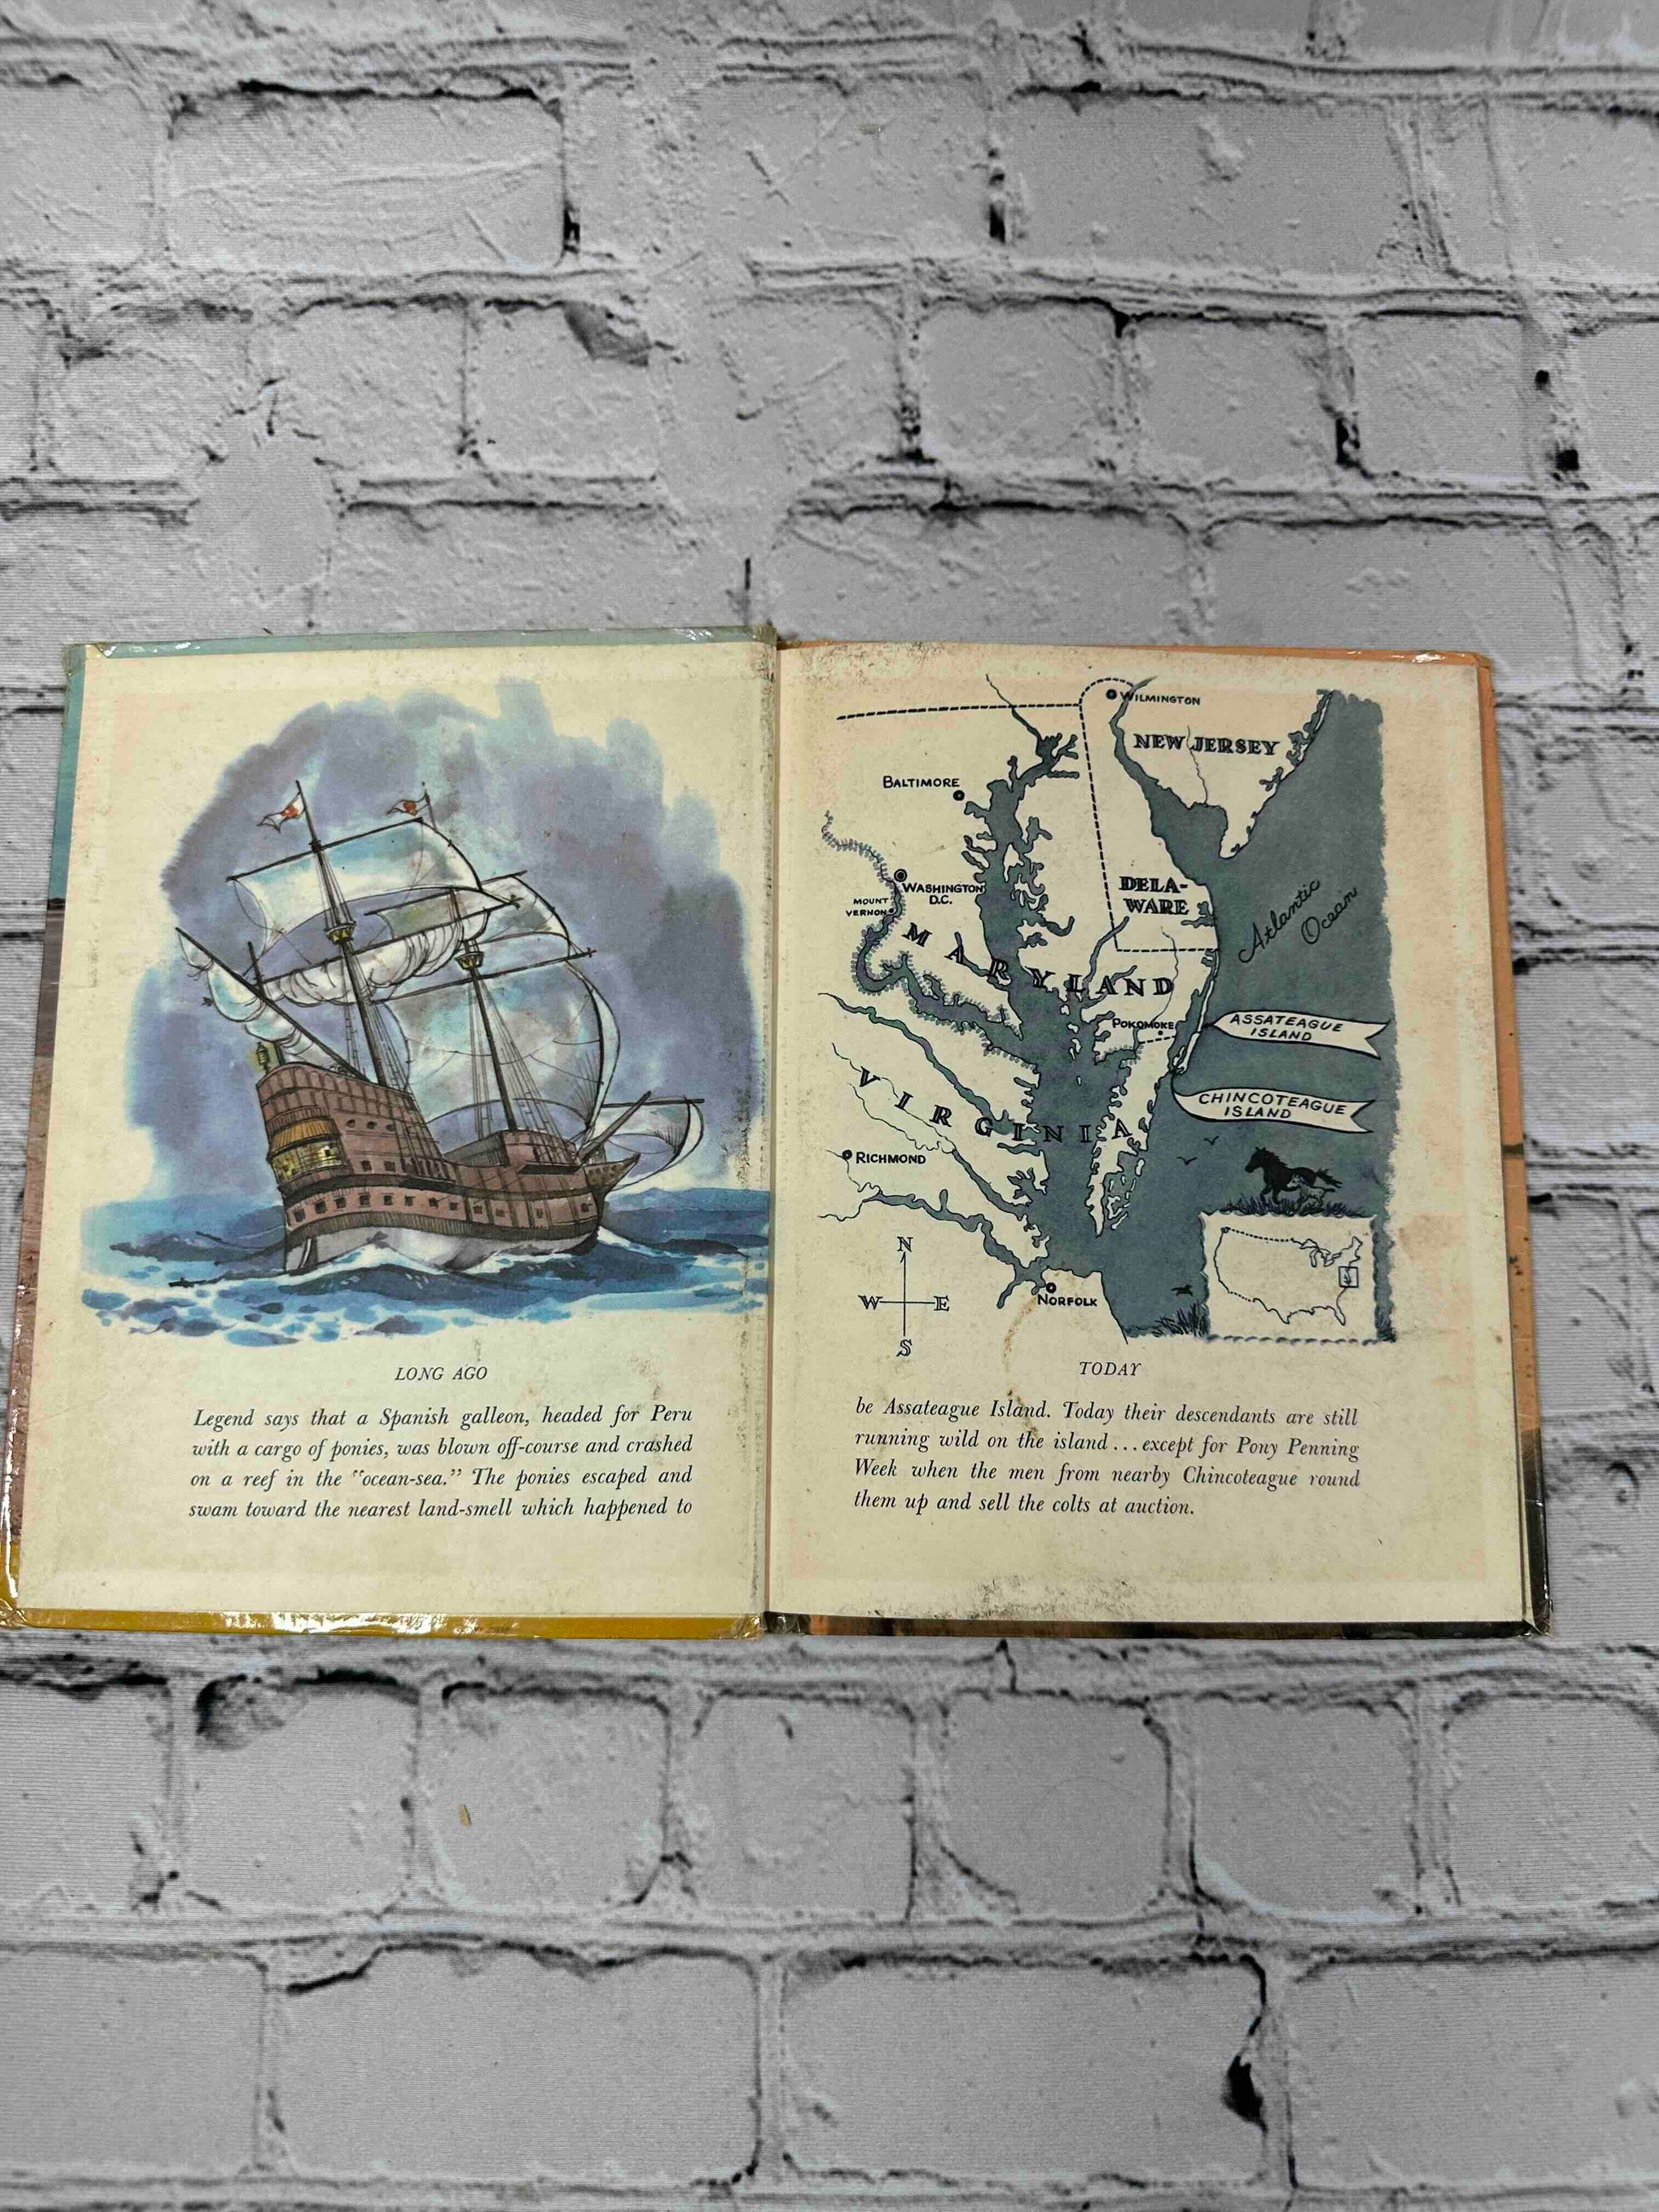 LONG AGO
Legend says that a Spanish galleon, headed for Peru
with a cargo of ponies, was blown off-course and crashed
on a reef in the "ocean-sea." The ponies escaped and
swam toward the nearest land-smell which happened to
WILMINGTON
NEW JERSEY
BALTIMORE
WASHINGTON
D.C.
MOUNT
VERNON
DELA-
WARE
Atlantic
Ocean
MARYLAND
POKOMOKE
ASSATEAGUE
ISLAND
CHINCOTEAGUE
ISLAND
VIRGINIA
RICHMOND
N
W E
S
NORFOLK
TODAY
be Assateague Island. Today their descendants are still
running wild on the island ... except for Pony Penning
Week when the men from nearby Chincoteague round
them up and sell the colts at auction.